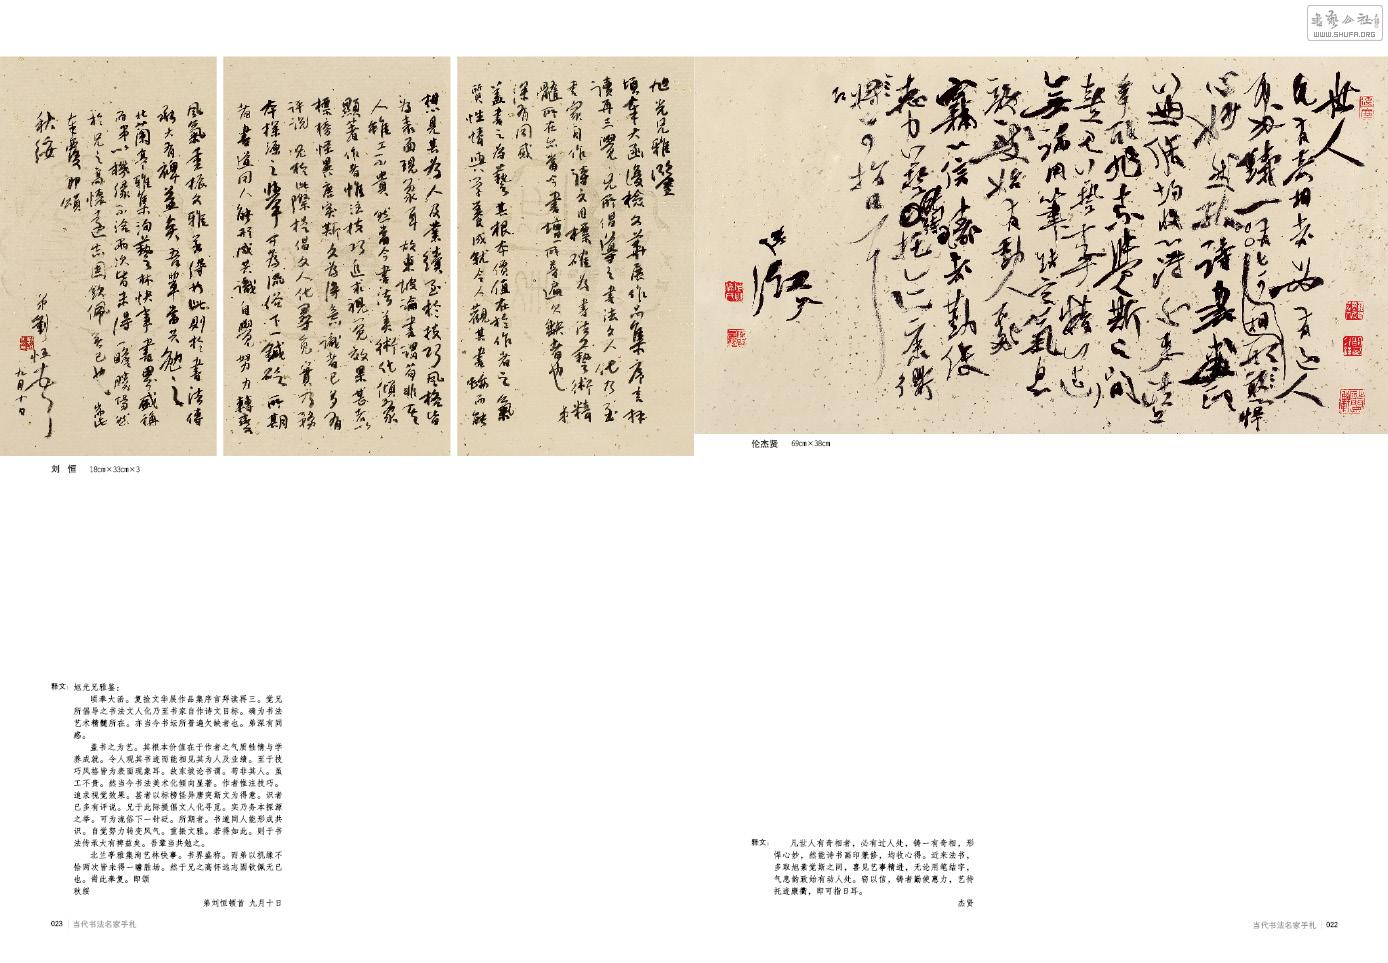 书艺公社
WWW.SHUFA.ORG
刘 恒 18cm×33cm×3
伦杰贤 69cm×38cm
释文：旭光兄雅鉴：
顷奉大函。复捡文华展作品集序言拜读再三。觉兄
所倡导之书法文人化乃至书家自作诗文目标。确为书法
艺术精髓所在。亦当今书坛所普遍欠缺者也。弟深有同
感。
盖书之为艺。其根本价值在于作者之气质性情与学
养成就。令人观其书迹而能相见其为人及业绩。至于技
巧风格皆为表面现象耳。故东坡论书谓。苟非其人。虽
工不贵。然当今书法美术化倾向显著。作者惟注技巧。
追求视觉效果。甚者以标榜怪异唐突斯文为得意。识者
已多有评说。兄于此际提倡文人化寻觅。实乃务本探源
之举。可为流俗下一针砭。所期者。书道同人能形成共
识。自觉努力转变风气。重振文雅。若得如此。则于书
法传承大有裨益矣。吾辈当共勉之。
北兰亭雅集洵艺林快事。书界盛称。而弟以机缘不
恰两次皆未得一瞻胜场。然于兄之高怀远志固钦佩无已
也。耑此奉复。即颂
秋绥
弟刘恒顿首 九月十日
释文： 凡世人有奇相者，必有过人处，铸一有奇相，形
悍心妙，然能诗书画印兼修，均收心得。近来法书，
多取旭素觉斯之间，喜见艺事精进，无论用笔结字，
气息韵致始有动人处。窃以信，铸者勤使惠力，艺待
托迹康衢，即可指日耳。
杰贤
023 当代书法名家手札
当代书法名家手札 022